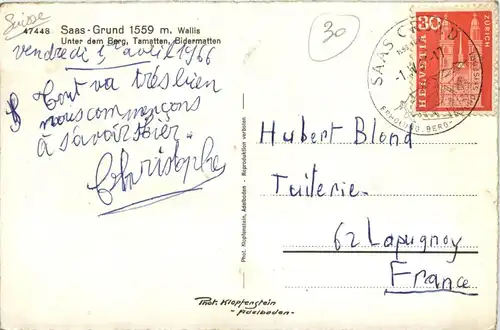 Suisse
47448 Saas-Grund 1559 m. Wallis
Unter dem Berg, Tamatten, Bidermatten
30
vendredi 1er avril 1966
Tout va très bien
nous commençons
à savoir skier.
Christophe
Phot. Klopfenstein, Adelboden - Reproduktion verboten
HELVETIA 30
ZÜRICH
SAAS
Hubert Blond
Tuilerie.
62 Lapugnoy
France
Phot. Klopfenstein
-Adelboden-